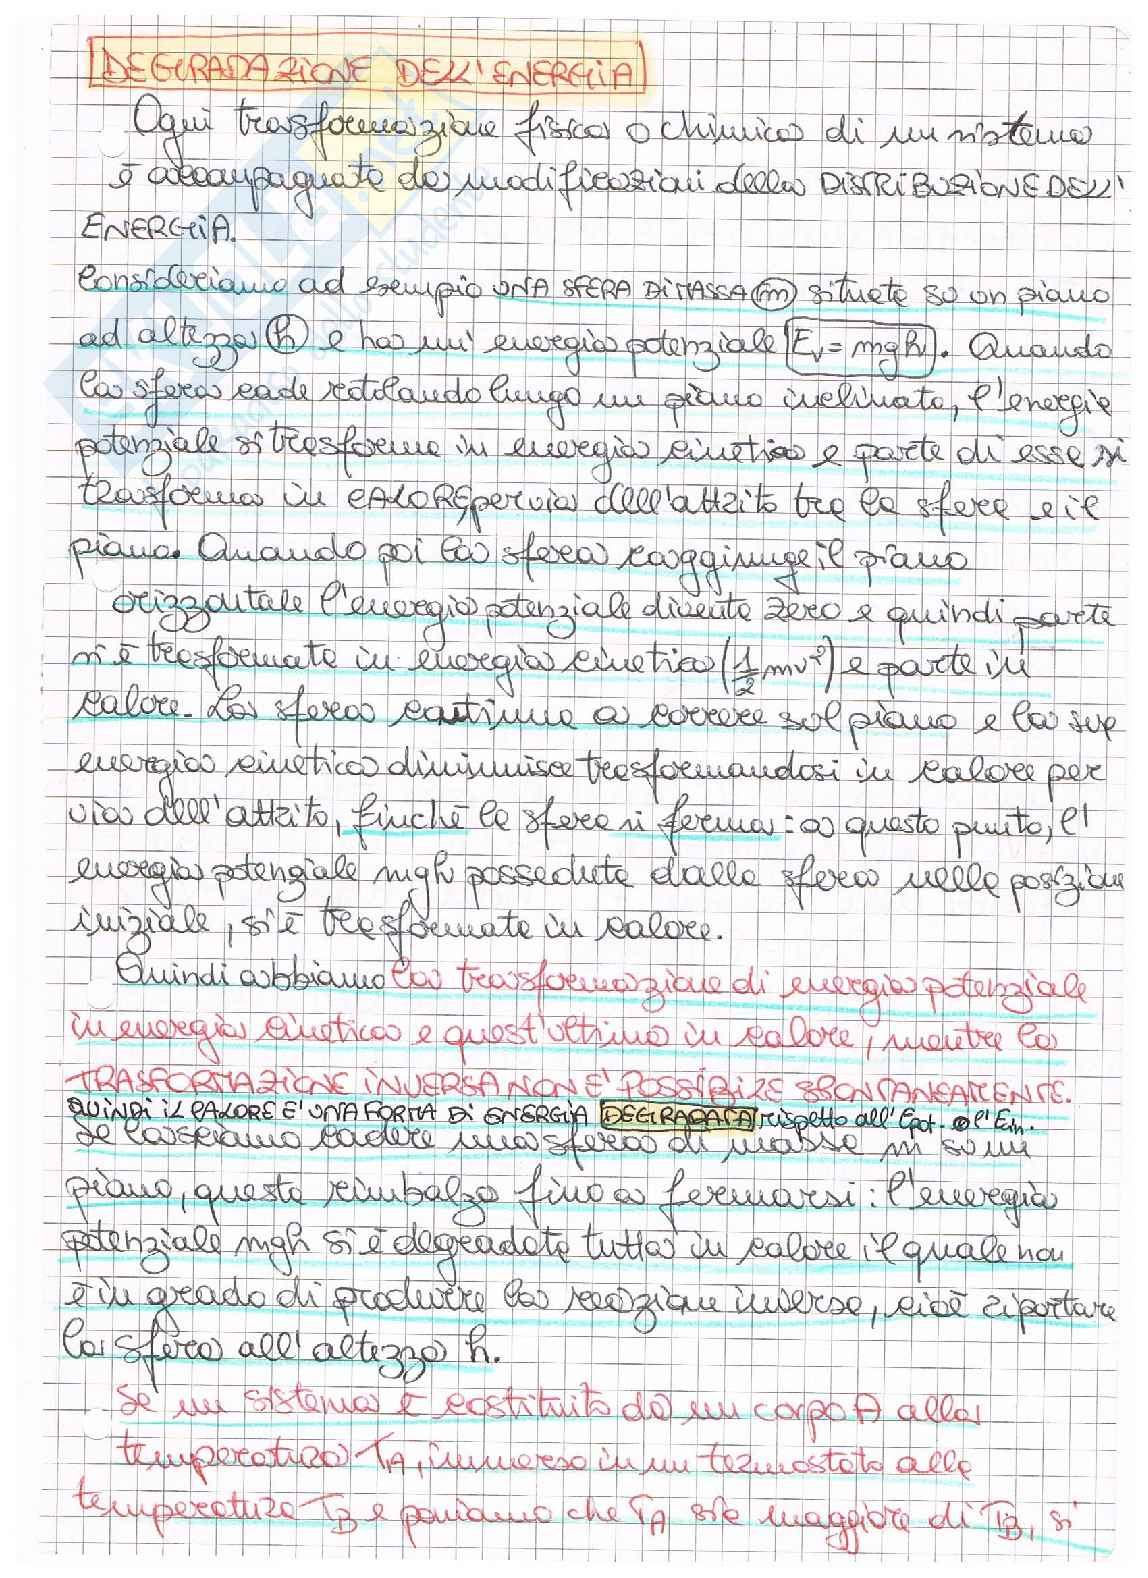 DEGRADAZIONE DELL'ENERGIA
Ogni trasformazione fisica o chimica di un sistema
è accompagnata da modificazioni della DISTRIBUZIONE DELL'
ENERGIA.
Consideriamo ad esempio UNA SFERA DI MASSA (m) situata su un piano
ad altezza (h) e ha un'energia potenziale Ev = mgh. Quando
la sfera cade rotolando lungo un piano inclinato, l'energia
potenziale si trasforma in energia cinetica e parte di essa si
trasforma in CALORE, per via dell'attrito tra la sfera e il
piano. Quando poi la sfera raggiunge il piano
orizzontale l'energia potenziale diventa zero e quindi parte
si è trasformata in energia cinetica (1/2 mv²) e parte in
calore. La sfera continua a correre sul piano e la sua
energia cinetica diminuisce trasformandosi in calore per
via dell'attrito, finchè la sfera si ferma: a questo punto, l'
energia potenziale mgh posseduta dalla sfera nella posizione
iniziale, si è trasformata in calore.
Quindi abbiamo la trasformazione di energia potenziale
in energia cinetica e quest'ultima in calore, mentre la
TRASFORMAZIONE INVERSA NON E' POSSIBILE SPONTANEAMENTE.
QUINDI IL CALORE E' UNA FORMA DI ENERGIA DEGRADATA rispetto all'Epot. o l'Ecin.
Se lasciamo cadere una sfera di massa m su un
piano, questa rimbalza fino a fermarsi: l'energia
potenziale mgh si è degradata tutta in calore il quale non
è in grado di produrre la reazione inversa, cioè riportare
la sfera all'altezza h.
Se un sistema è costituito da un corpo A alla
temperatura TA, immerso in un termostato alla
temperatura TB e poniamo che TA sia maggiore di TB, si